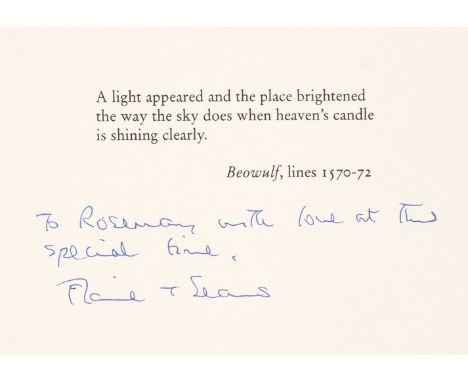 A light appeared and the place brightened
the way the sky does when heaven's candle
is shining clearly.
Beowulf, lines 1570-72
To Rosemary with love at this
special time.
+ Seamus